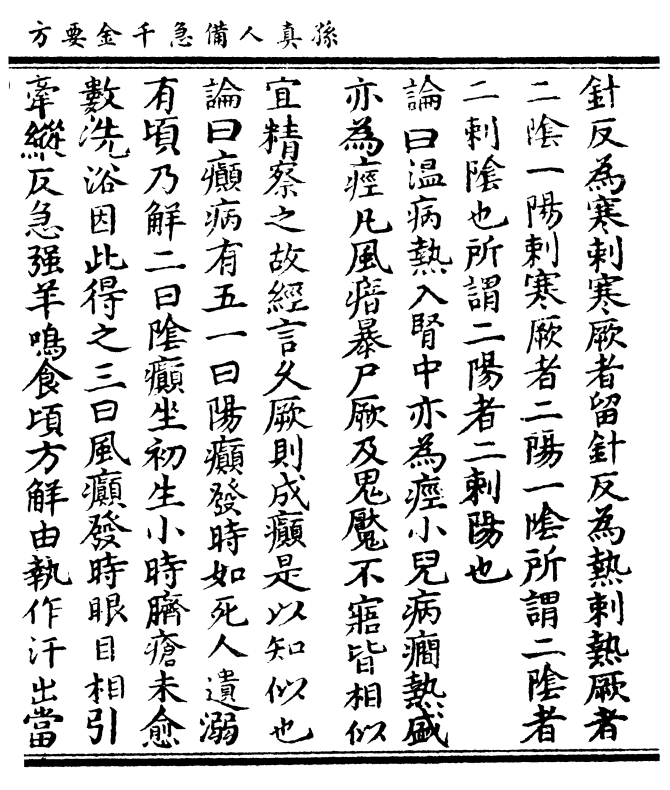 孫真人備急千金要方
針反為寒刺寒厥者留針反為熱刺熱厥者
二陰一陽刺寒厥者二陽一陰所謂二陰者
二刺陰也所謂二陽者二刺陽也
論曰温病熱入腎中亦為痙小兒病癇熱盛
亦為痙凡風瘖暴尸厥及鬼魘不寤皆相似
宜精察之故經言久厥則成癲是以知似也
論曰癲病有五一曰陽癲發時如死人遺溺
有頃乃解二曰陰癲坐初生小時臍瘡未愈
數洗浴因此得之三曰風癲發時眼目相引
牽縱反急强羊鳴食頃方解由執作汗出當